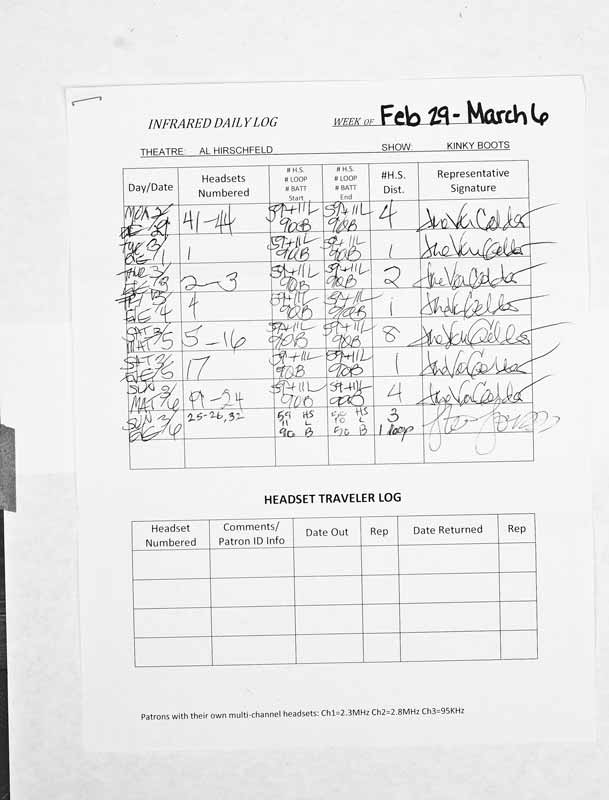 INFRARED DAILY LOG WEEK OF Feb 29 - March 6
THEATRE: AL HIRSCHFELD SHOW: KINKY BOOTS
Day/Date Headsets Numbered # H.S. # LOOP # BATT Start # H.S. # LOOP # BATT End #H.S. Dist. Representative Signature
MON 2/ 29 41-44 59+11L 90B 59+11L 90B 4
TUE 3/ EVE/1 1 59+11L 90B 59+11L 90B 1
3/ EVE/3 2-3 59+11L 90B 59+11L 90B 2
3/ EVE/4 4 59+11L 90B 59+11L 90B 1
SAT 3/ MAT/5 5-16 59+11L 90B 59+11L 90B 8
SAT 3/ EVE/5 17 59+11L 90B 59+11L 90B 1
SUN 3/ MAT/6 9-24 59+11L 90B 59+11L 90B 4
SUN 3/ EVE/6 25-26, 32 59 HS 11 L 90 B HS L B 3 1 loop
HEADSET TRAVELER LOG
Headset Numbered Comments/ Patron ID Info Date Out Rep Date Returned Rep
Patrons with their own multi-channel headsets: Ch1=2.3MHz Ch2=2.8MHz Ch3=95KHz